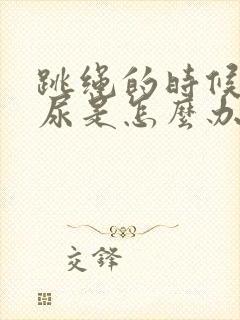 跳绳的時候
尿是怎麼办
交鋒